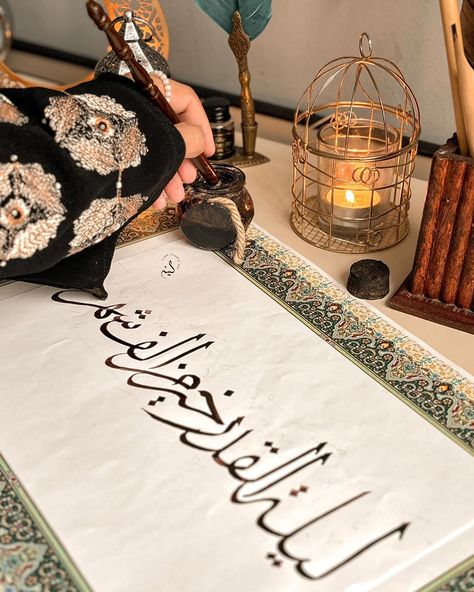 ليلة القدر خير من ألف شهر